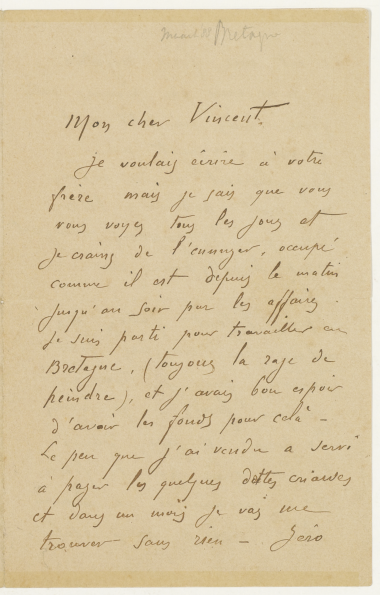 Bretagne
Mon cher Vincent.
Je voulais écrire à votre
frère mais je sais que vous
vous voyez tous les jours et
je crains de l'ennuyer, occupé
comme il est depuis le matin
jusqu'au soir par les affaires.
Je suis parti pour travailler en
Bretagne, (toujours la rage de
peindre), et j'avais bon espoir
d'avoir les fonds pour celà -
Le peu que j'ai vendu a servi
à payer les quelques dettes criardes
et dans un mois je vais me
trouver sans rien - Zéro